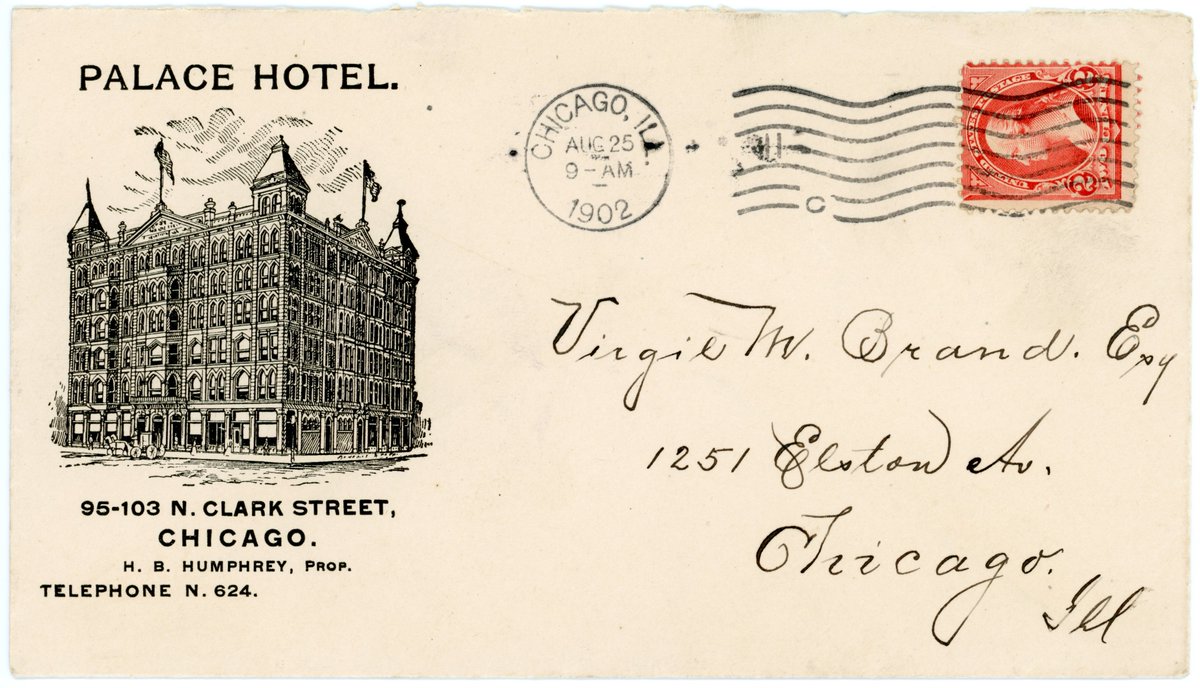 PALACE HOTEL.
95-103 N. CLARK STREET,
CHICAGO.
H. B. HUMPHREY, PROP.
TELEPHONE N. 624.
CHICAGO, ILL.
AUG 25
9-AM
1902
C
Virgil M. Brand. Esq
1251 Elston Av.
Chicago.
Ill